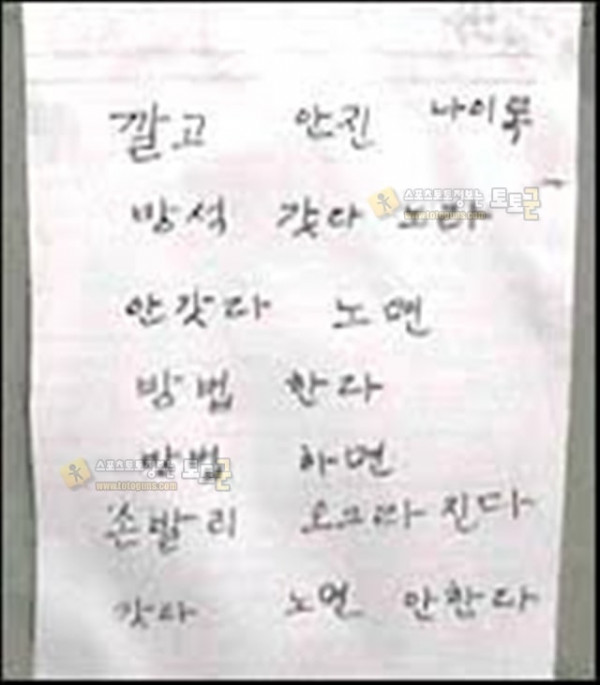 깔고 안진 나이롱
방석 갓다 노라
안갓다 노면
방법 한다
방법 하면
손발리 오그라진다
갓다 노면 안한다
스포츠토토정보는 토토군
www.totoguns.com
스포츠토토정보는 토토군
www.totoguns.com